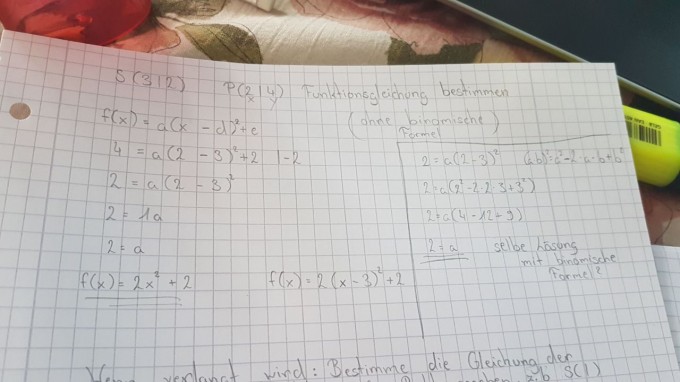 S(3|2) P(2|4) Funktionsgleichung bestimmen
x y
(ohne binamische Formel)
f(x) = a(x - d)² + e
4 = a(2 - 3)² + 2 | -2
2 = a(2 - 3)²
2 = 1a
2 = a
f(x) = 2x² + 2
f(x) = 2(x - 3)² + 2
2 = a(2 - 3)² (a-b)² = a² - 2·a·b + b²
2 = a(2² - 2·2·3 + 3²)
2 = a(4 - 12 + 9)
2 = a selbe Lösung
mit binamische
Formel?
verlangt wird: Bestimme die Gleichung der
z.b S( | )